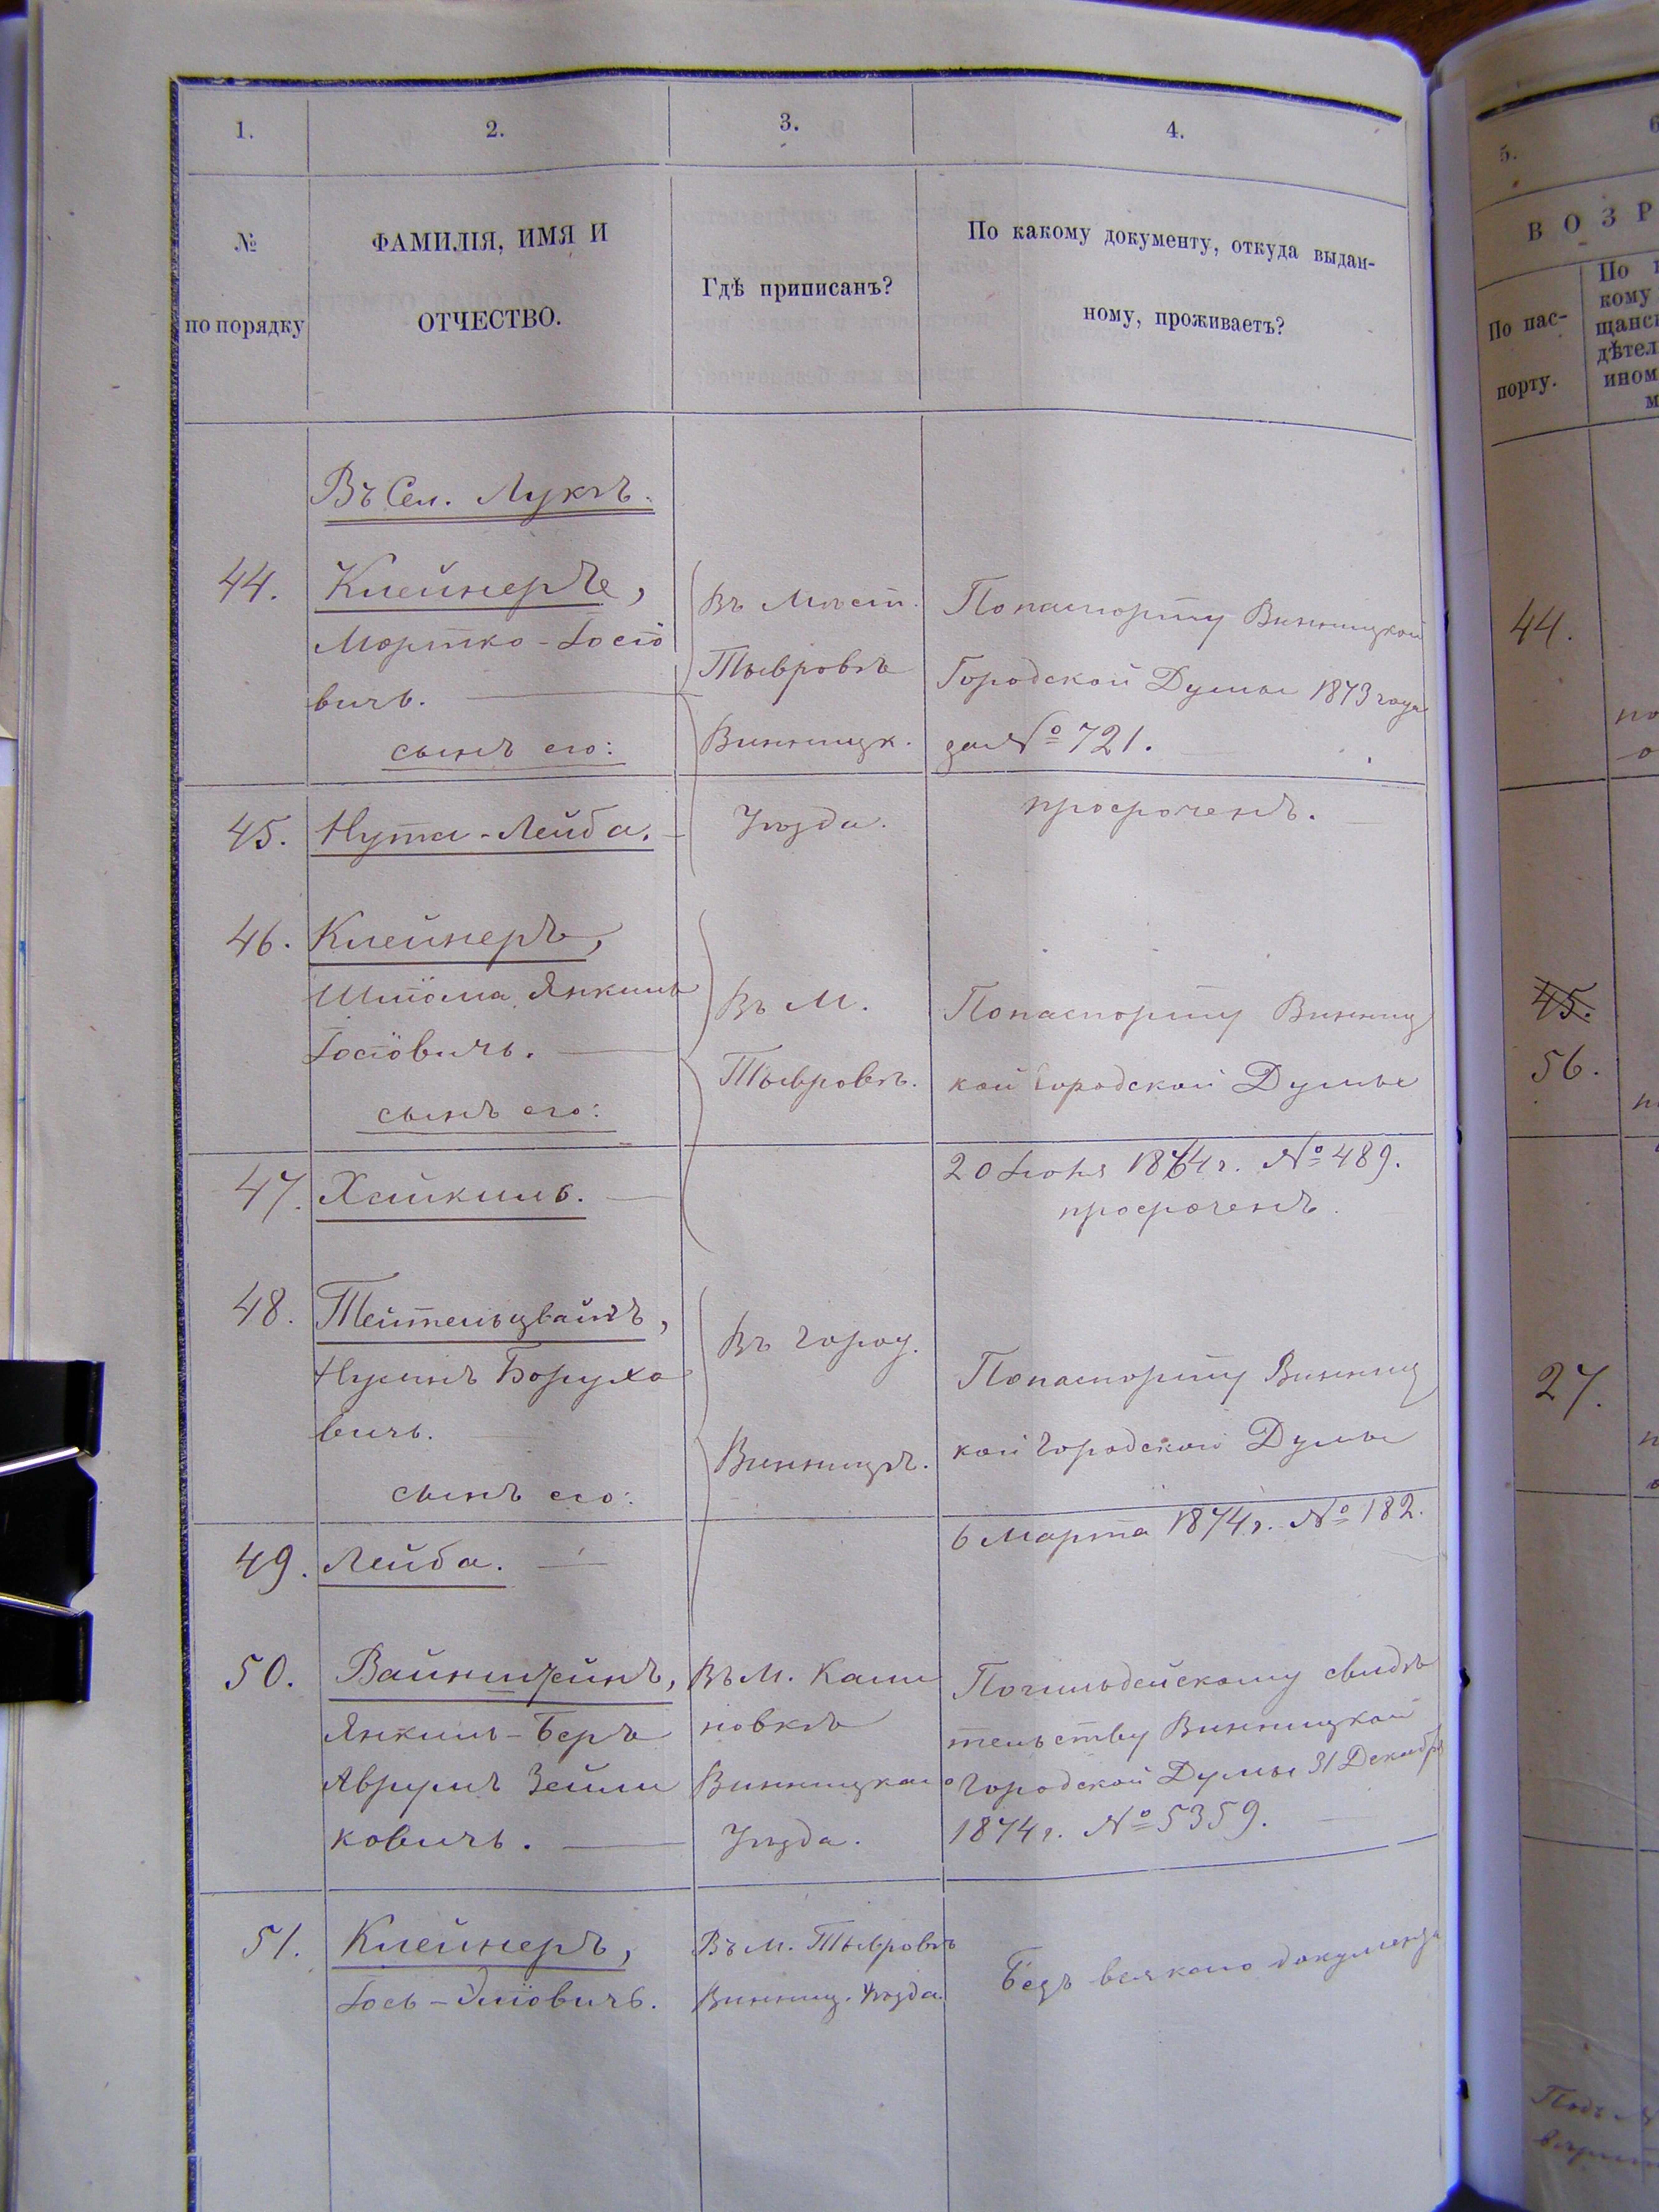 1.
2.
3.
4.
№
по порядку
ФАМИЛІЯ, ИМЯ И
ОТЧЕСТВО.
Гдѣ приписанъ?
По какому документу, откуда выдан-
ному, проживаетъ?
Въ Сел. Лукѣ.
44.
Клейнеръ,
Мортко-Іосіо
вичъ.
сынъ его:
Въ Мѣст.
Тывровѣ
Винницк.
Уѣзда.
По паспорту Винницкой
Городской Думы 1873 года
за № 721.
просроченъ.
45. Нута-Лейба.
46. Клейнеръ,
Шліома Янкель
Іосіовичъ.
сынъ его:
Въ М.
Тывровѣ.
По паспорту Винниц
кой Городской Думы
20 Іюня 1874 г. № 489.
просроченъ.
47. Хаикель.
48. Тейтельцвайгъ,
Нухимъ Борухо
вичъ.
сынъ его:
Въ город.
Винницѣ.
По паспорту Винниц
кой Городской Думы
6 Марта 1874 г. № 182.
49. Лейба.
50. Вайнштейнъ,
Янкель-Беръ
Аврумъ Зейли
ковичъ.
Въ М. Кали
новкѣ
Винницкаго
Уѣзда.
По гильдейскому свидѣ
тельству Винницкой
Городской Думы 31 Декабря
1874 г. № 5359.
51. Клейнеръ,
Іось-Эліовичъ.
Въ м. Тывровѣ
Винниц. Уѣзда.
Безъ всякого документа
5.
6
ВОЗР
По пас-
порту.
По
кому
щанс
дѣтел
ином
м
44.
45.
56.
27.